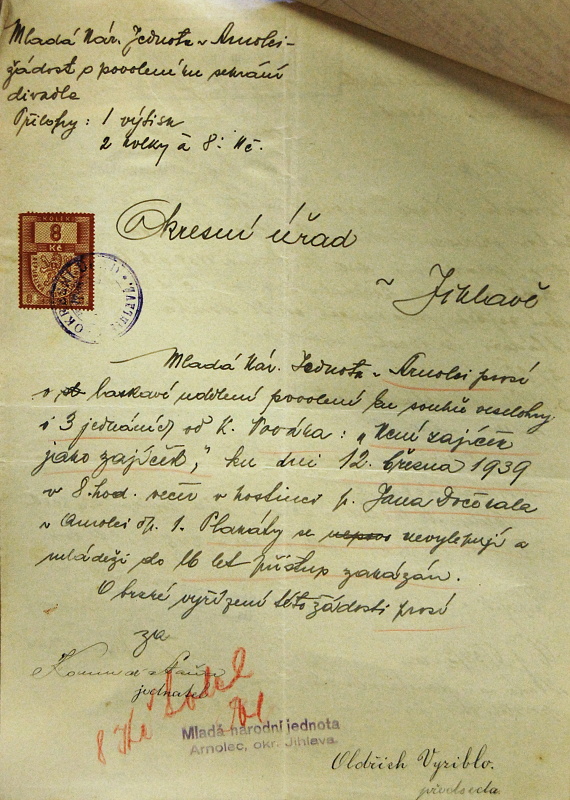 Mladá Nár. Jednota v Arnolci-
žádost o povolení ku sehrání
divadla
Přílohy: 1 výtisk
2 kolky à 8.- Kč.
KOLEK
8
Kč
Okresní úřad
v Jihlavě
Mladá Nár. Jednota v Arnolci prosí
o laskavé udělení povolení ku veselohry
o 3 jednáních od K. : „Není zajíček
jako zajíček," ku dni 12. března 1939
v 8. hod. večer v hostinci p. Jana
v Arnolci čp. 1. Plakáty se nevylepují a
mládeži do 16 let přístup zakázán.
O brzké vyřízení této žádosti prosí
za
jednatel
8 Kč
Mladá národní jednota
Arnolec, okr. Jihlava.
Oldřich Vyziblo.
předseda